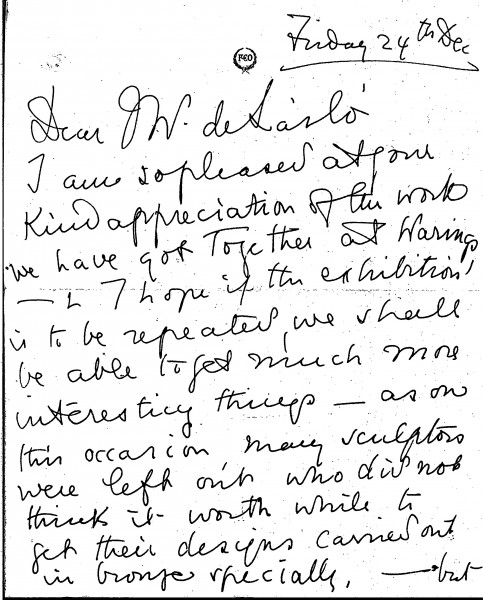 Friday 24th Dec
FEO
Dear Mr. de László
I am so pleased at your
kind appreciation of the work
we have got together at Warings
— & I hope if the exhibition
is to be repeated, we shall
be able to get much more
interesting things — as on
this occasion many sculptors
were left out who did not
think it worth while to
get their designs carried out
in bronze specially, — but